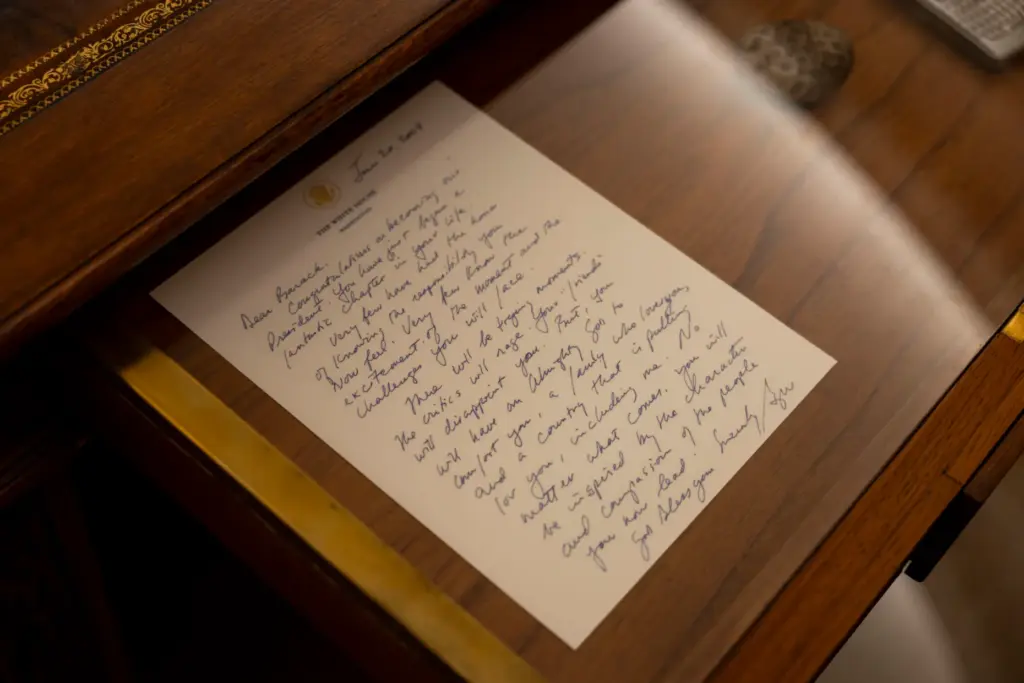 Jan 20 2009
THE WHITE HOUSE
WASHINGTON
Dear Barack,
Congratulations on becoming our
President. You have just begun a
fantastic chapter in your life.
Very few have had the honor
of knowing the responsibility you
now feel. Very few know the
excitement of the moment and the
challenges you will face.
There will be trying moments.
The critics will rage. Your "friends"
will disappoint you. But, you
will have an Almighty God to
comfort you, a family who loves you,
and a country that is pulling
for you, including me. No
matter what comes, you will
be inspired by the character
and compassion of the people
you now lead.
God bless you.
Sincerely,